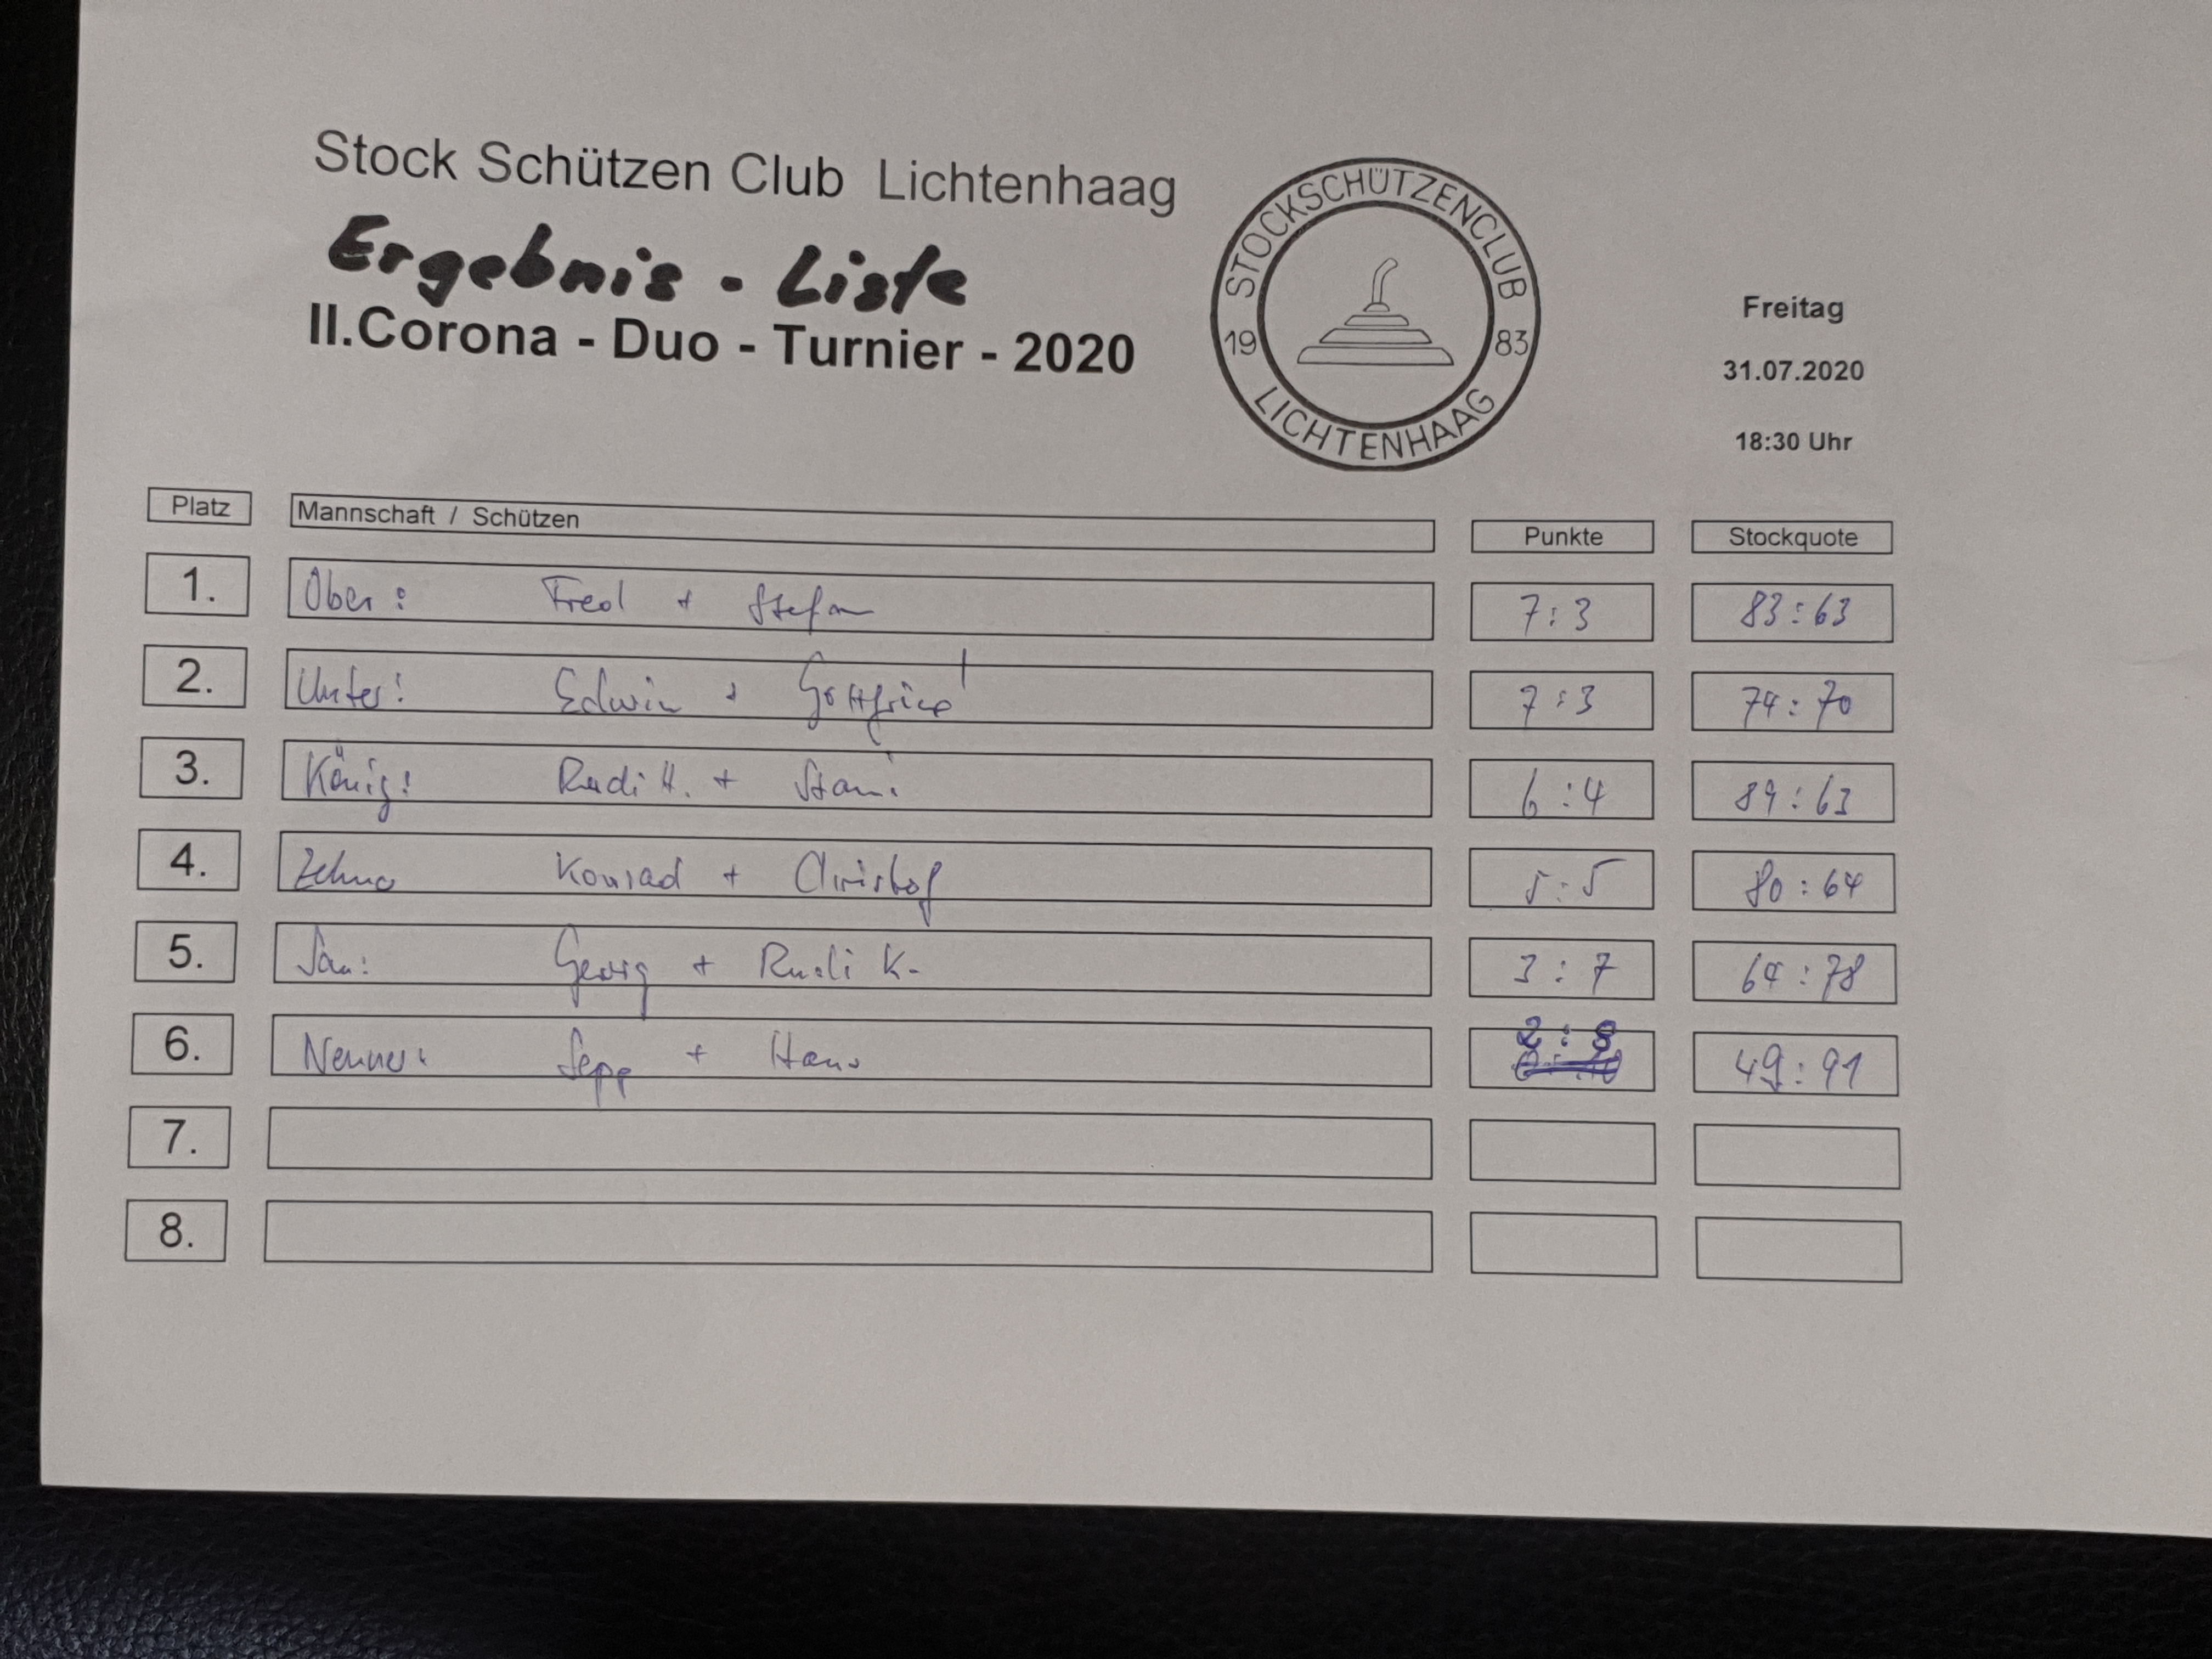 Stock Schützen Club Lichtenhaag
Ergebnis - Liste
II.Corona - Duo - Turnier - 2020
STOCKSCHÜTZENCLUB
19 83
LICHTENHAAG
Freitag
31.07.2020
18:30 Uhr
Platz Mannschaft / Schützen Punkte Stockquote
1. Ober: Fred + Stefan 7:3 83:63
2. Unter: Edwin + Gottfried 7:3 74:70
3. König: Rudi H. + Stani 6:4 89:63
4. Zehna Konrad + Christof 5:5 80:64
5. Sau: Georg + Rudi K. 3:7 64:78
6. Neuner: Sepp + Hans 2:8 49:91
7.
8.